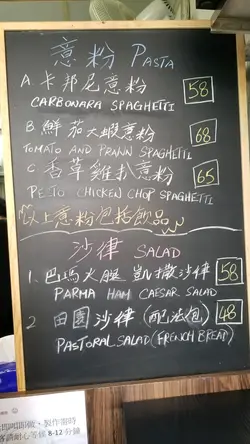 意粉 PASTA
A. 卡邦尼意粉 58
CARBONARA SPAGHETTI
B 鮮茄大蝦意粉 68
TOMATO AND PRAWN SPAGHETTI
C 香草雞扒意粉 65
PESTO CHICKEN CHOP SPAGHETTI
以上意粉包括飲品
沙律 SALAD
1. 巴瑪火腿凱撒沙律 58
PARMA HAM CAESAR SALAD
2 田園沙律 (配法包) 48
PASTORAL SALAD (FRENCH BREAT)
製作需時
耐心等候 8-12 分鐘